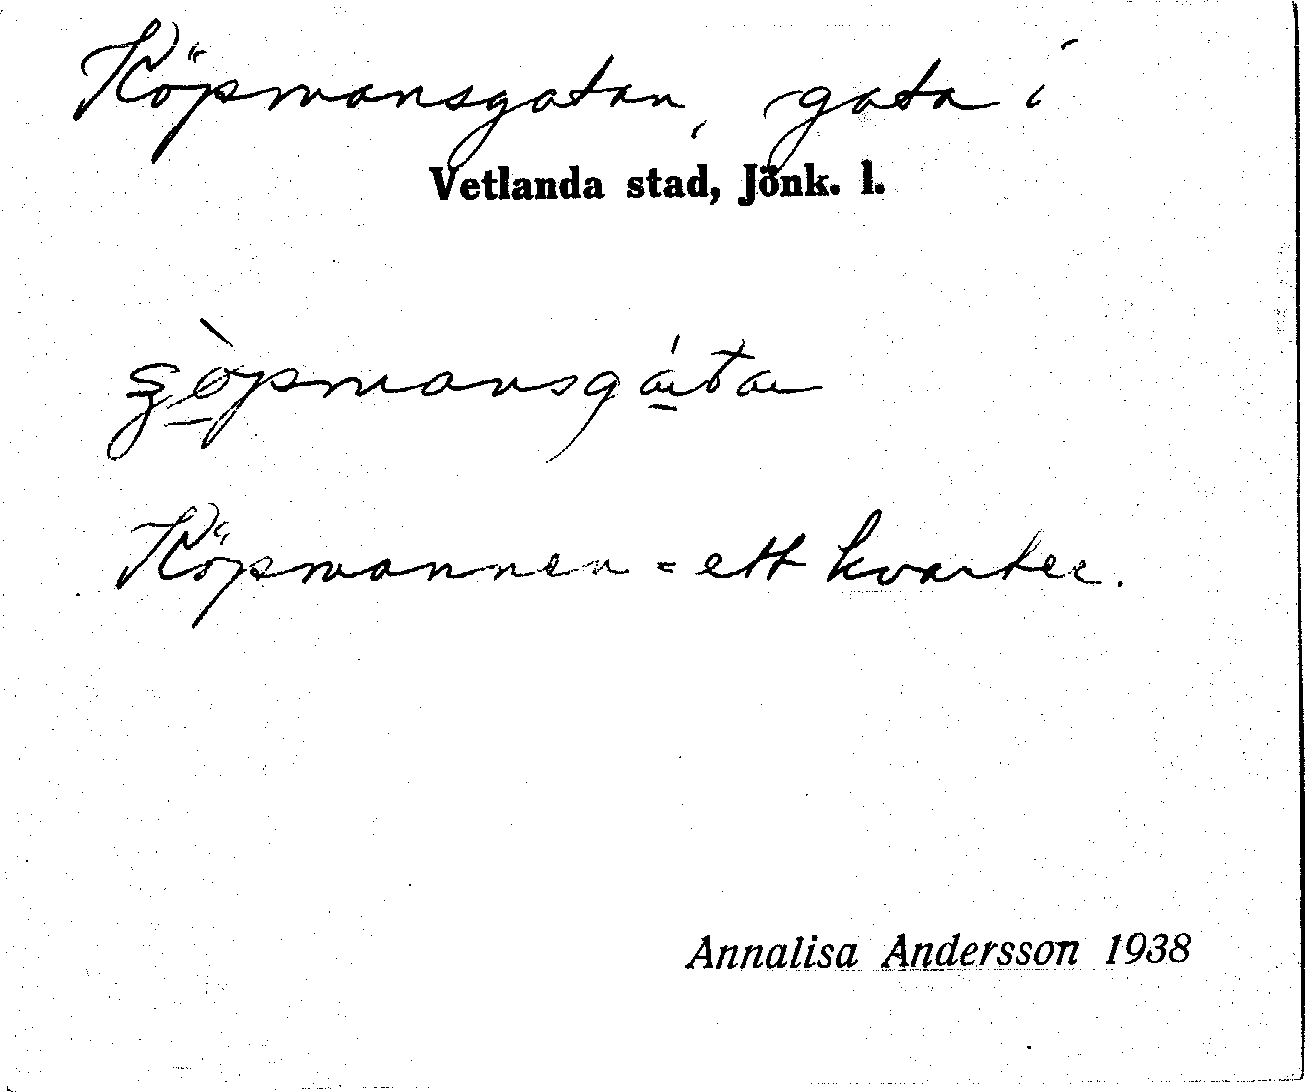 Köpmansgatan, gata i
Vetlanda stad, Jönk. l.
Köpmannen = ett kvarter.
Annalisa Andersson 1938